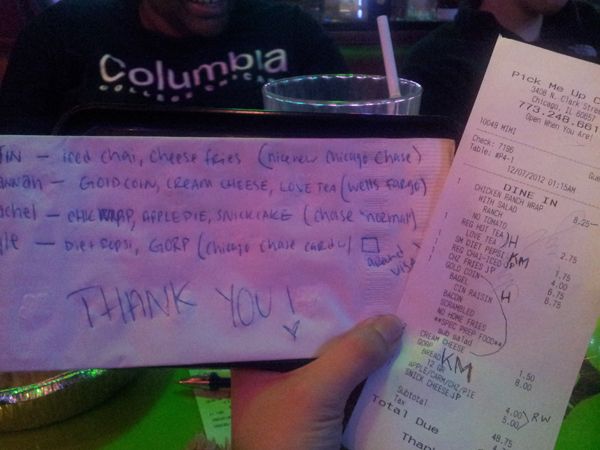 Columbia
COLLEGE CHICAGO
TIN — iced chai, cheese fries (nice new chicago chase)
annah — GOLDCOIN, CREAM CHEESE, LOVE TEA (wells fargo)
achel — CHK WRAP, APPLE PIE, SNICK CAKE (chase "normal")
yle — Diet pepsi, GORP (chicago chase card w/
visa)
THANK YOU!
Pick Me Up C
3408 N. Clark Street
Chicago, IL 60657
773-248-661
Open When You Are!
10049 MIMI
Check: 7196
Table: #P4-1
Gue
12/07/2012 01:15AM
DINE IN
1 CHICKEN RANCH WRAP 8.25
WITH SALAD
RANCH
NO TOMATO
1 REG HOT TEA 2.75
LOVE TEA H
1 SM DIET PEPSI KM 1.75
1 REG CHAI-ICED JP 4.00
1 CHZ FRIES JP 6.75
1 GOLD COIN H 8.75
BAGEL
CIN RAISIN
BACON
SCRAMBLED
NO HOME FRIES
**SPEC PREP FOOD**
sub salad
1 CREAM CHEESE 1.50
1 GORP KM 8.00
BREAD
12 GR
APPLE/CARM/CHZ/PIE 4.00
SNICK CHEESE JP 5.00 RW
Subtotal 48.75
Tax
Total Due
Thank